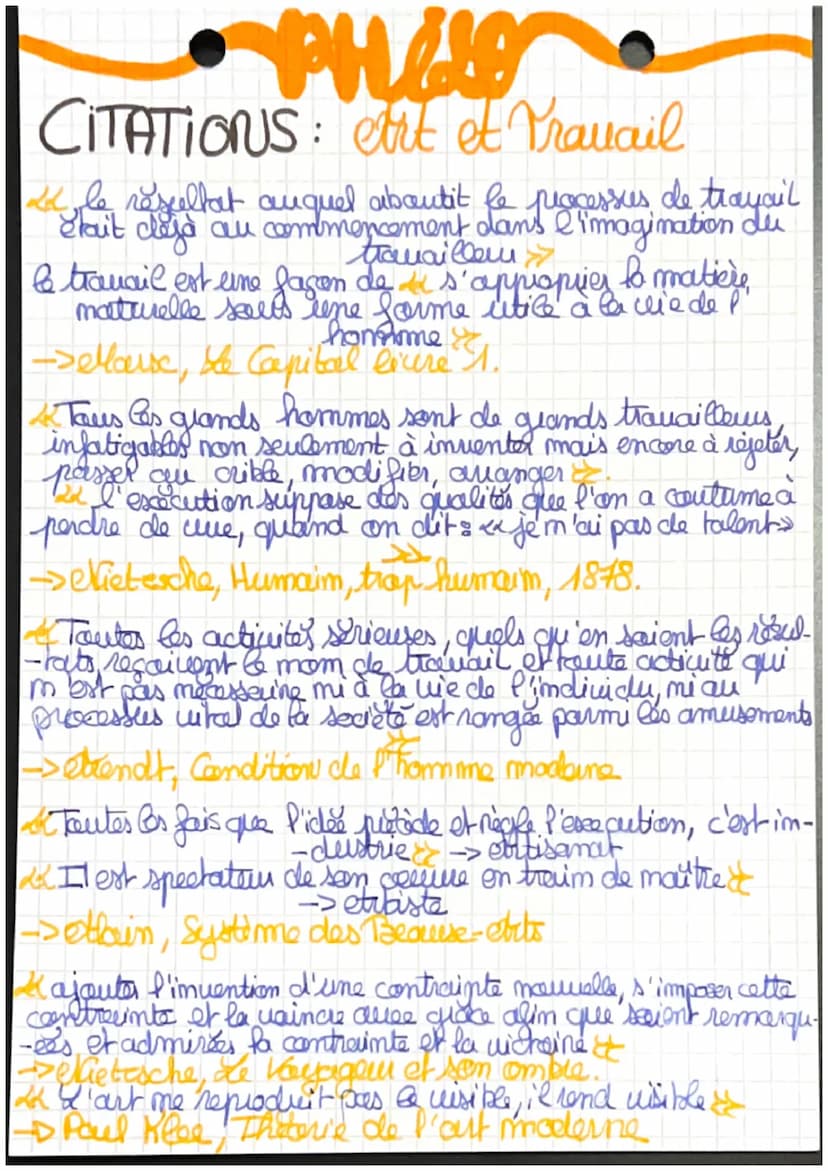 PHilo
CiTATiONS : Art et Travail
<< le résultat auquel aboutit le processus de travail
était déjà au commencement dans l'imagination du
travailleur >>
le travail est une façon de << s'approprier la matière
naturelle sous une forme utile à la vie de l'
homme >>
-> Marx, Le Capital livre 1.
<< Tous les grands hommes sont de grands travailleurs,
infatigables non seulement à inventer mais encore à rejeter,
passer au crible, modifier, arranger >>.
<< l'exécution suppose des qualités que l'on a coutume à
perdre de vue, quand on dit : << je n'ai pas de talent >>
>>
-> Nietzsche, Humain, trop humain, 1878.
<< Toutes les activités sérieuses, quels qu'en soient les résul-
-tats, reçoivent le nom de travail et toute activité qui
n'est pas nécessaire ni à la vie de l'individu, ni au
processus vital de la société est rangée parmi les amusements
>>
-> Arendt, Condition de l'homme moderne
<< Toutes les fois que l'idée précède et règle l'execution, c'est in-
-dustrie >> -> Artisanat
<< Il est spectateur de son oeuvre en train de naître >>
-> Artiste
-> Alain, Système des Beaux-Arts
<< ajouter l'invention d'une contrainte nouvelle, s'imposer cette
contrainte et la vaincre avec grâce afin que soient remarqu-
-ées et admirées la contrainte et la victoire >>
-> Nietzsche, Le Voyageur et son ombre.
<< L'art ne reproduit pas le visible, il rend visible >>
-> Paul Klee, Théorie de l'art moderne